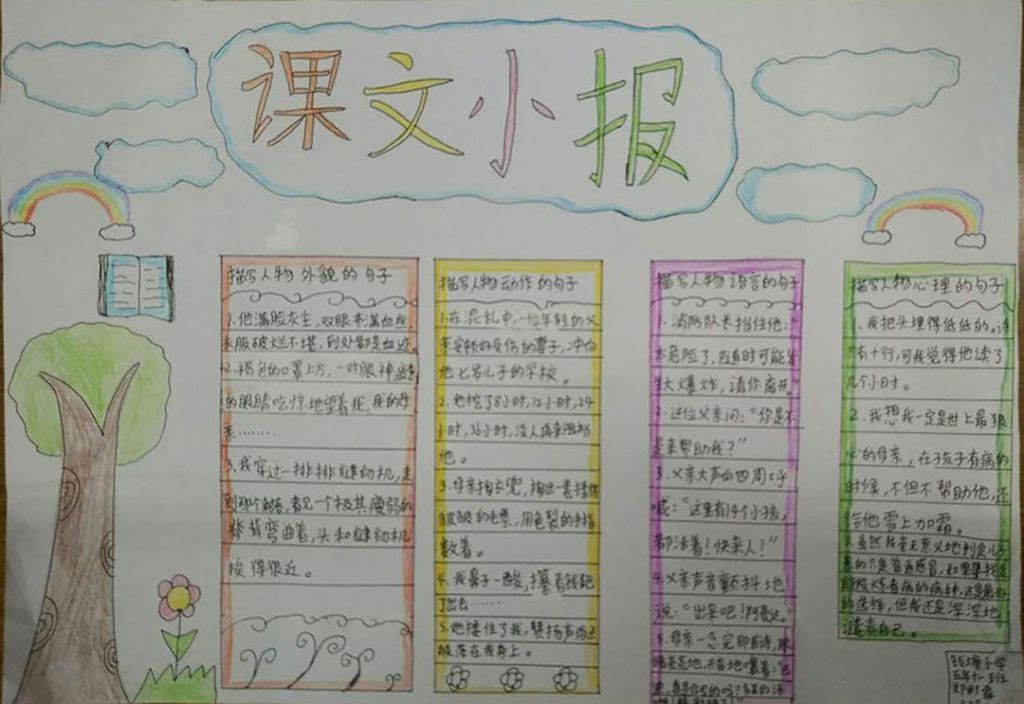 课文小报
描写人物外貌的句子
1.他满脸灰尘，双眼布满血丝，
衣服破烂不堪，到处都是血迹。
2.褐色的口罩上方，一对眼神疲惫
的眼睛吃惊地望着我，我的母
亲………
3.我穿过一排排缝纫机，走
到那个角落，看见一个极其瘦弱的
脊背弯曲着，头和缝纫机
挨得很近。
描写人物动作的句子
1.在混乱中，一位年轻的父
亲安顿好受伤的妻子，冲向
他七岁儿子的学校。
2.他挖了8小时，12小时，24
小时，36小时，没人再来阻挡
他。
3.母亲掏衣兜，掏出一卷揉得
皱皱的毛票，用龟裂的手指
数着。
4.我鼻子一酸，攥着钱跑
了出去……
5.他搂住了我，赞扬声雨点
般落在我身上。
描写人物语言的句子
1.消防队长挡住他：
太危险了，随时可能发
生大爆炸，请你离开。"
2.这位父亲问："你是不
是来帮助我？"
3.父亲大声向四周呼
喊："这里有14个小孩，
都活着！快来人！"
4.父亲声音颤抖地
说："出来吧！阿曼达。"
5.母亲一念完那首诗，眼
睛亮亮地，兴奋地嚷着："巴
迪，真是你写的吗？多美的诗
描写人物心理的句子
1.我把头埋得低低的。诗
只有十行，可我觉得他读了
几个小时。
2.我想我一定是世上最狠
心的母亲，在孩子有病的
时候，不但不帮助他，还
给他雪上加霜。
的选择，但我还是深深地
谴责自己。
钱塘小学